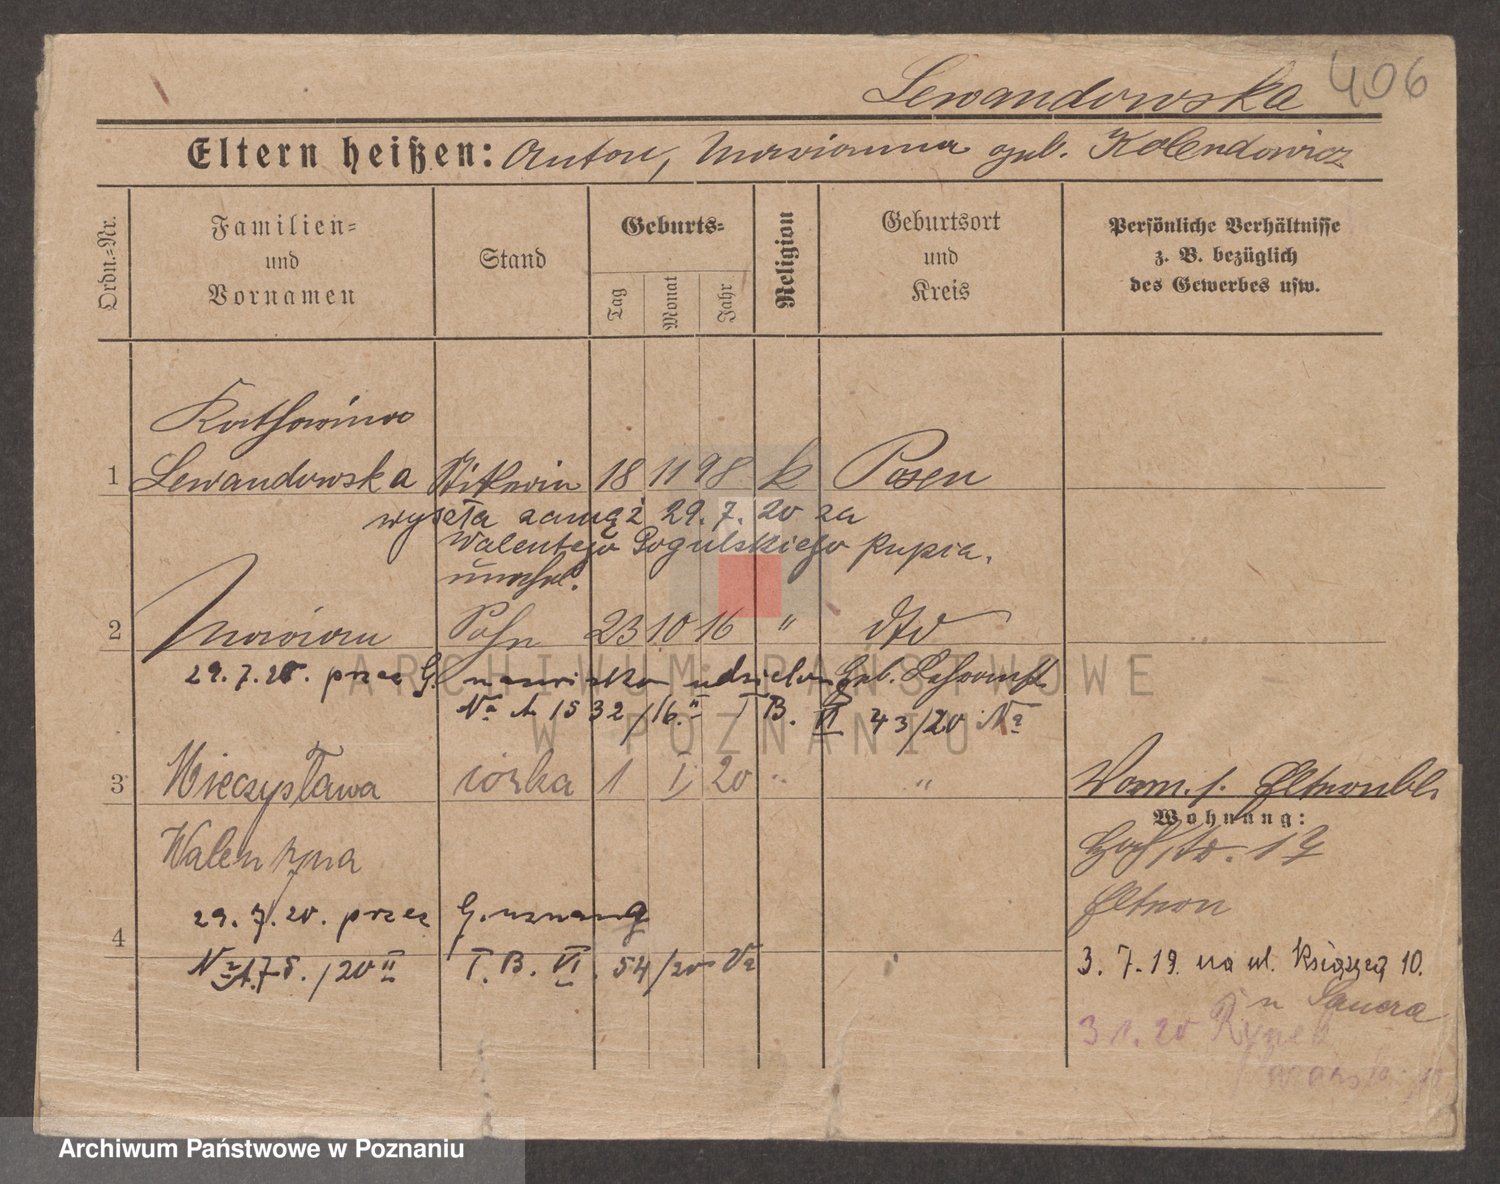 Lewandowska 406
Eltern heißen: Anton, Marianna geb. Kolendowicz
Ordn.-Nr.
Familien=
und
Vornamen
Stand
Geburts=
Tag
Monat
Jahr
Religion
Geburtsort
und
Kreis
Persönliche Verhältnisse
z. B. bezüglich
des Gewerbes usw.
Katharina
1 Lewandowska 18 11 98 k Posen
wyszła zamąż 29. 7. 20 za
Walentego Gogulskiego kupca.
unehel.
2 Marian Sohn 23 10 16 " dto
29. 7. 20. przez G. nazwisko
No A 1532/16. II T B. VI 43/20
3 Mieczysława córka 1 I 20 " "
Walentyna
29. 7. 20. przez G. uznane
4
T. B. VI. 54/20
Wohnung:
Eltern
3. 7. 19. na ul. Książęcą 10.
u
3 1. 20 Rynek
ARCHIWUM PAŃSTWOWE
W POZNANIU
Archiwum Państwowe w Poznaniu